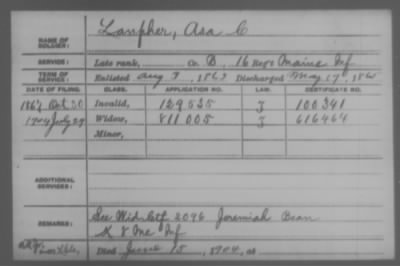 NAME OF SOLDIER: Lanpher, Asa C
SERVICE: Late rank, Co. D, 16 Reg't Maine Inf
TERM OF SERVICE: Enlisted Aug 9, 1862 Discharged May 17, 1865
DATE OF FILING. CLASS. APPLICATION NO. LAW. CERTIFICATE NO.
1867 Oct 30 Invalid, 129535 J 100341
1904 July 29 Widow, 811005 J 616464
Minor,
ADDITIONAL SERVICES:
REMARKS: See Wid. Ctf 2096 Jeremiah Bean
K 8 Me Inf
Died June 15, 1904, at